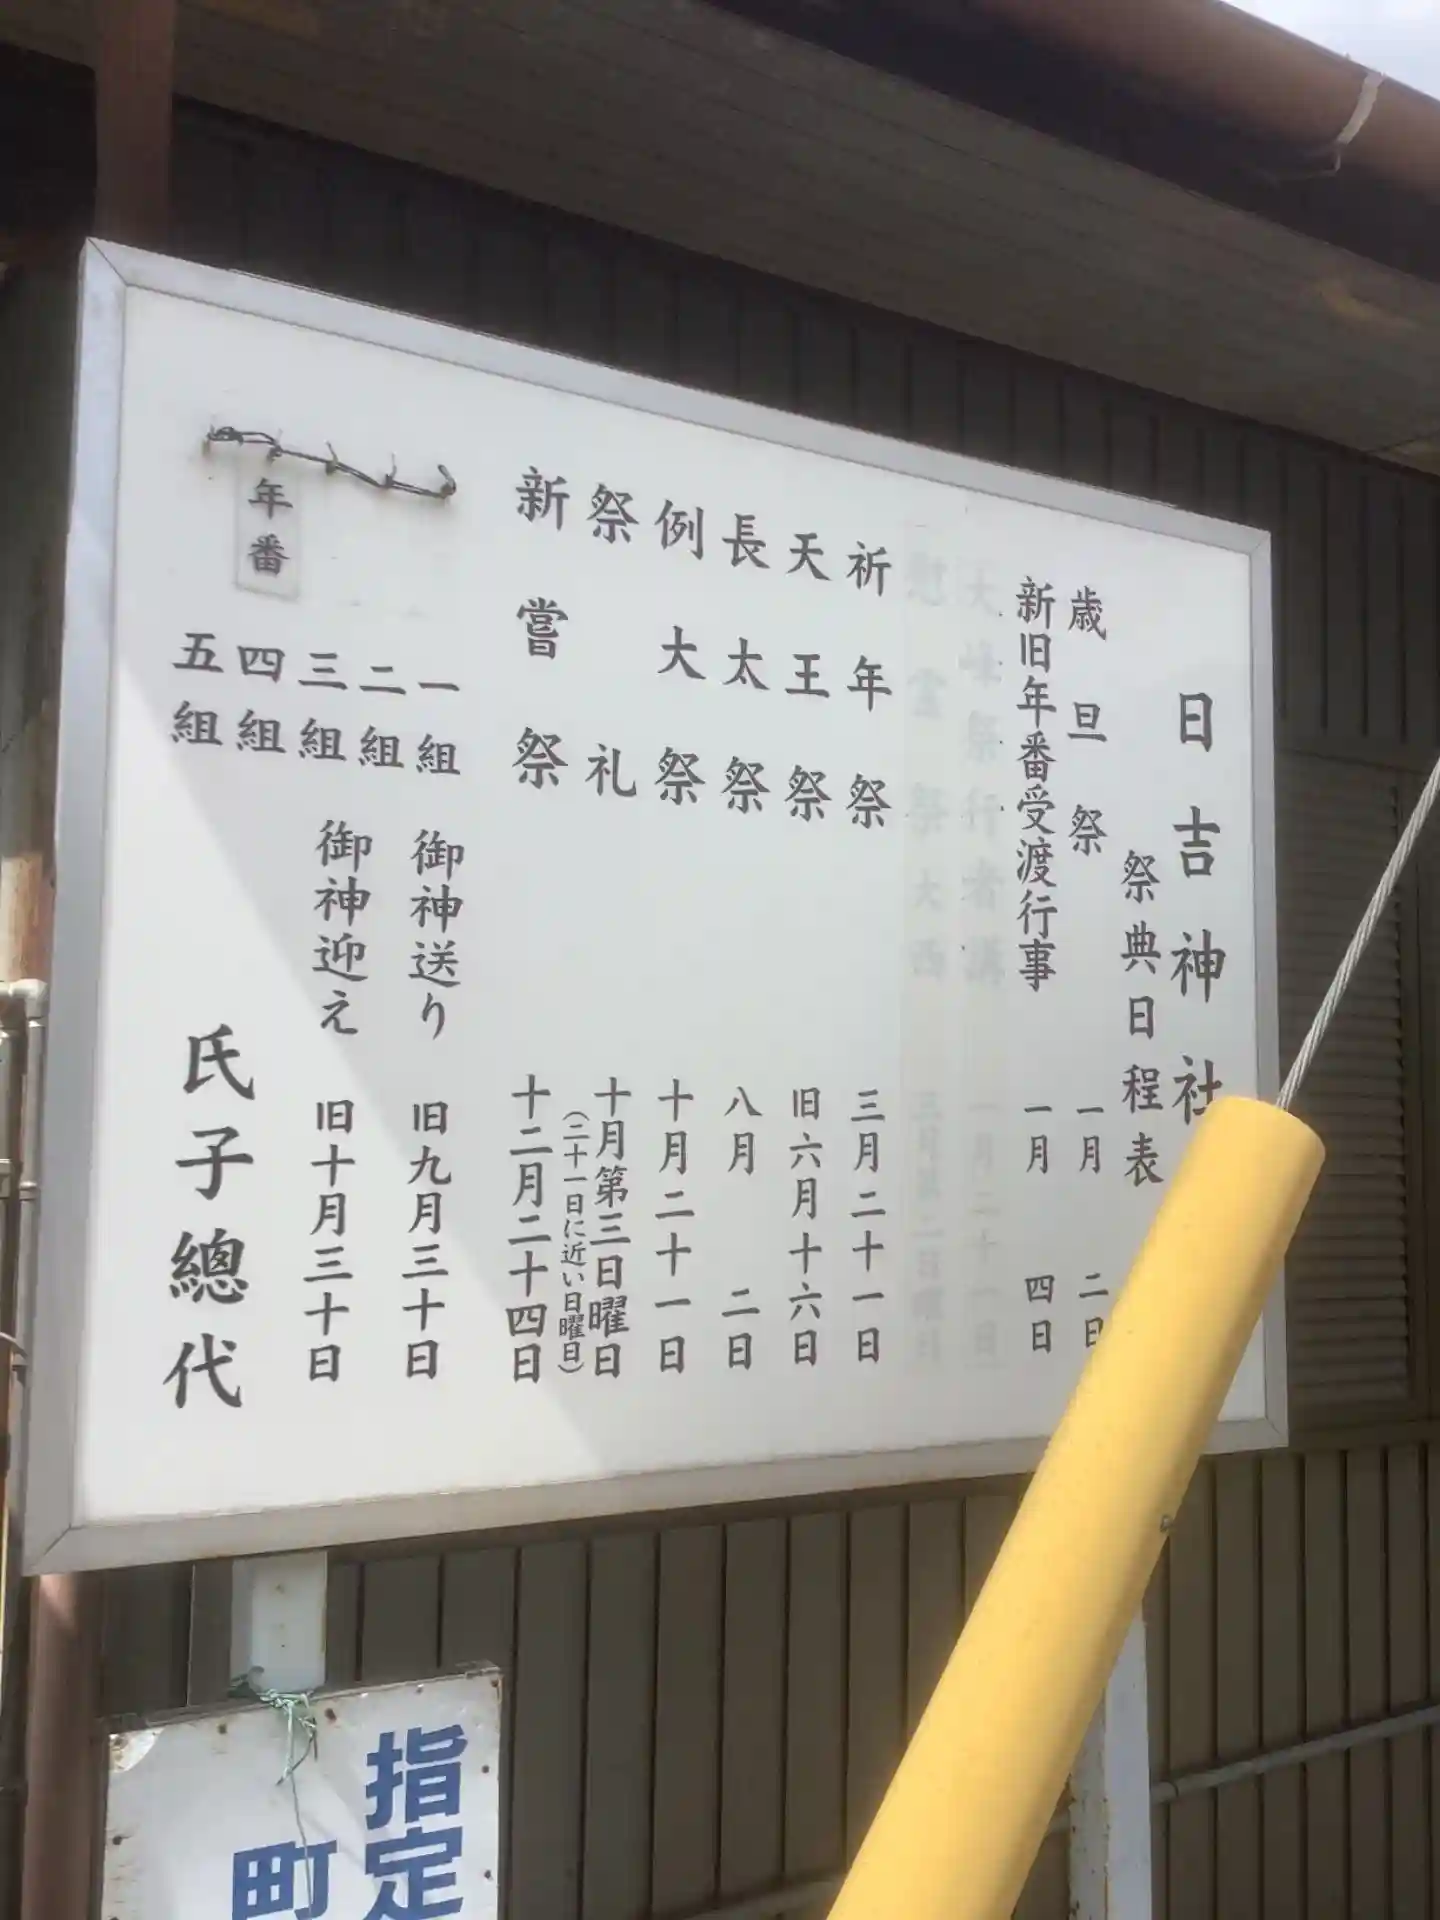 日吉神社
祭典日程表
歳旦祭 一月 二日
新旧年番受渡行事 一月 四日
大峰祭行者講 一月二十一日
慰霊祭 大西 三月第二日曜日
祈年祭 三月二十一日
天王祭 旧六月十六日
長太祭 八月 二日
例大祭 十月二十一日
祭礼 十月第三日曜日
(二十一日に近い日曜日)
新嘗祭 十二月二十四日
御神送り 旧九月三十日
御神迎え 旧十月三十日
年番
一組
二組
三組
四組
五組
氏子總代
指定
町